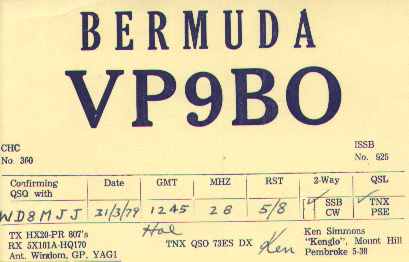 BERMUDA
VP9BO
CHC
No. 360
ISSB
No. 925
Confirming QSO with Date GMT MHZ RST 2-Way QSL
WD8MJJ 21/3/79 1245 28 5/8 ✓ SSB CW ✓ TNX PSE
TX HX20-PR 807's
RX 5X101A-HQ170
Ant. Windom, GP. YAGI
Hal
TNX QSO 73ES DX Ken
Ken Simmons
"Kenglo", Mount Hill
Pembroke 5-30